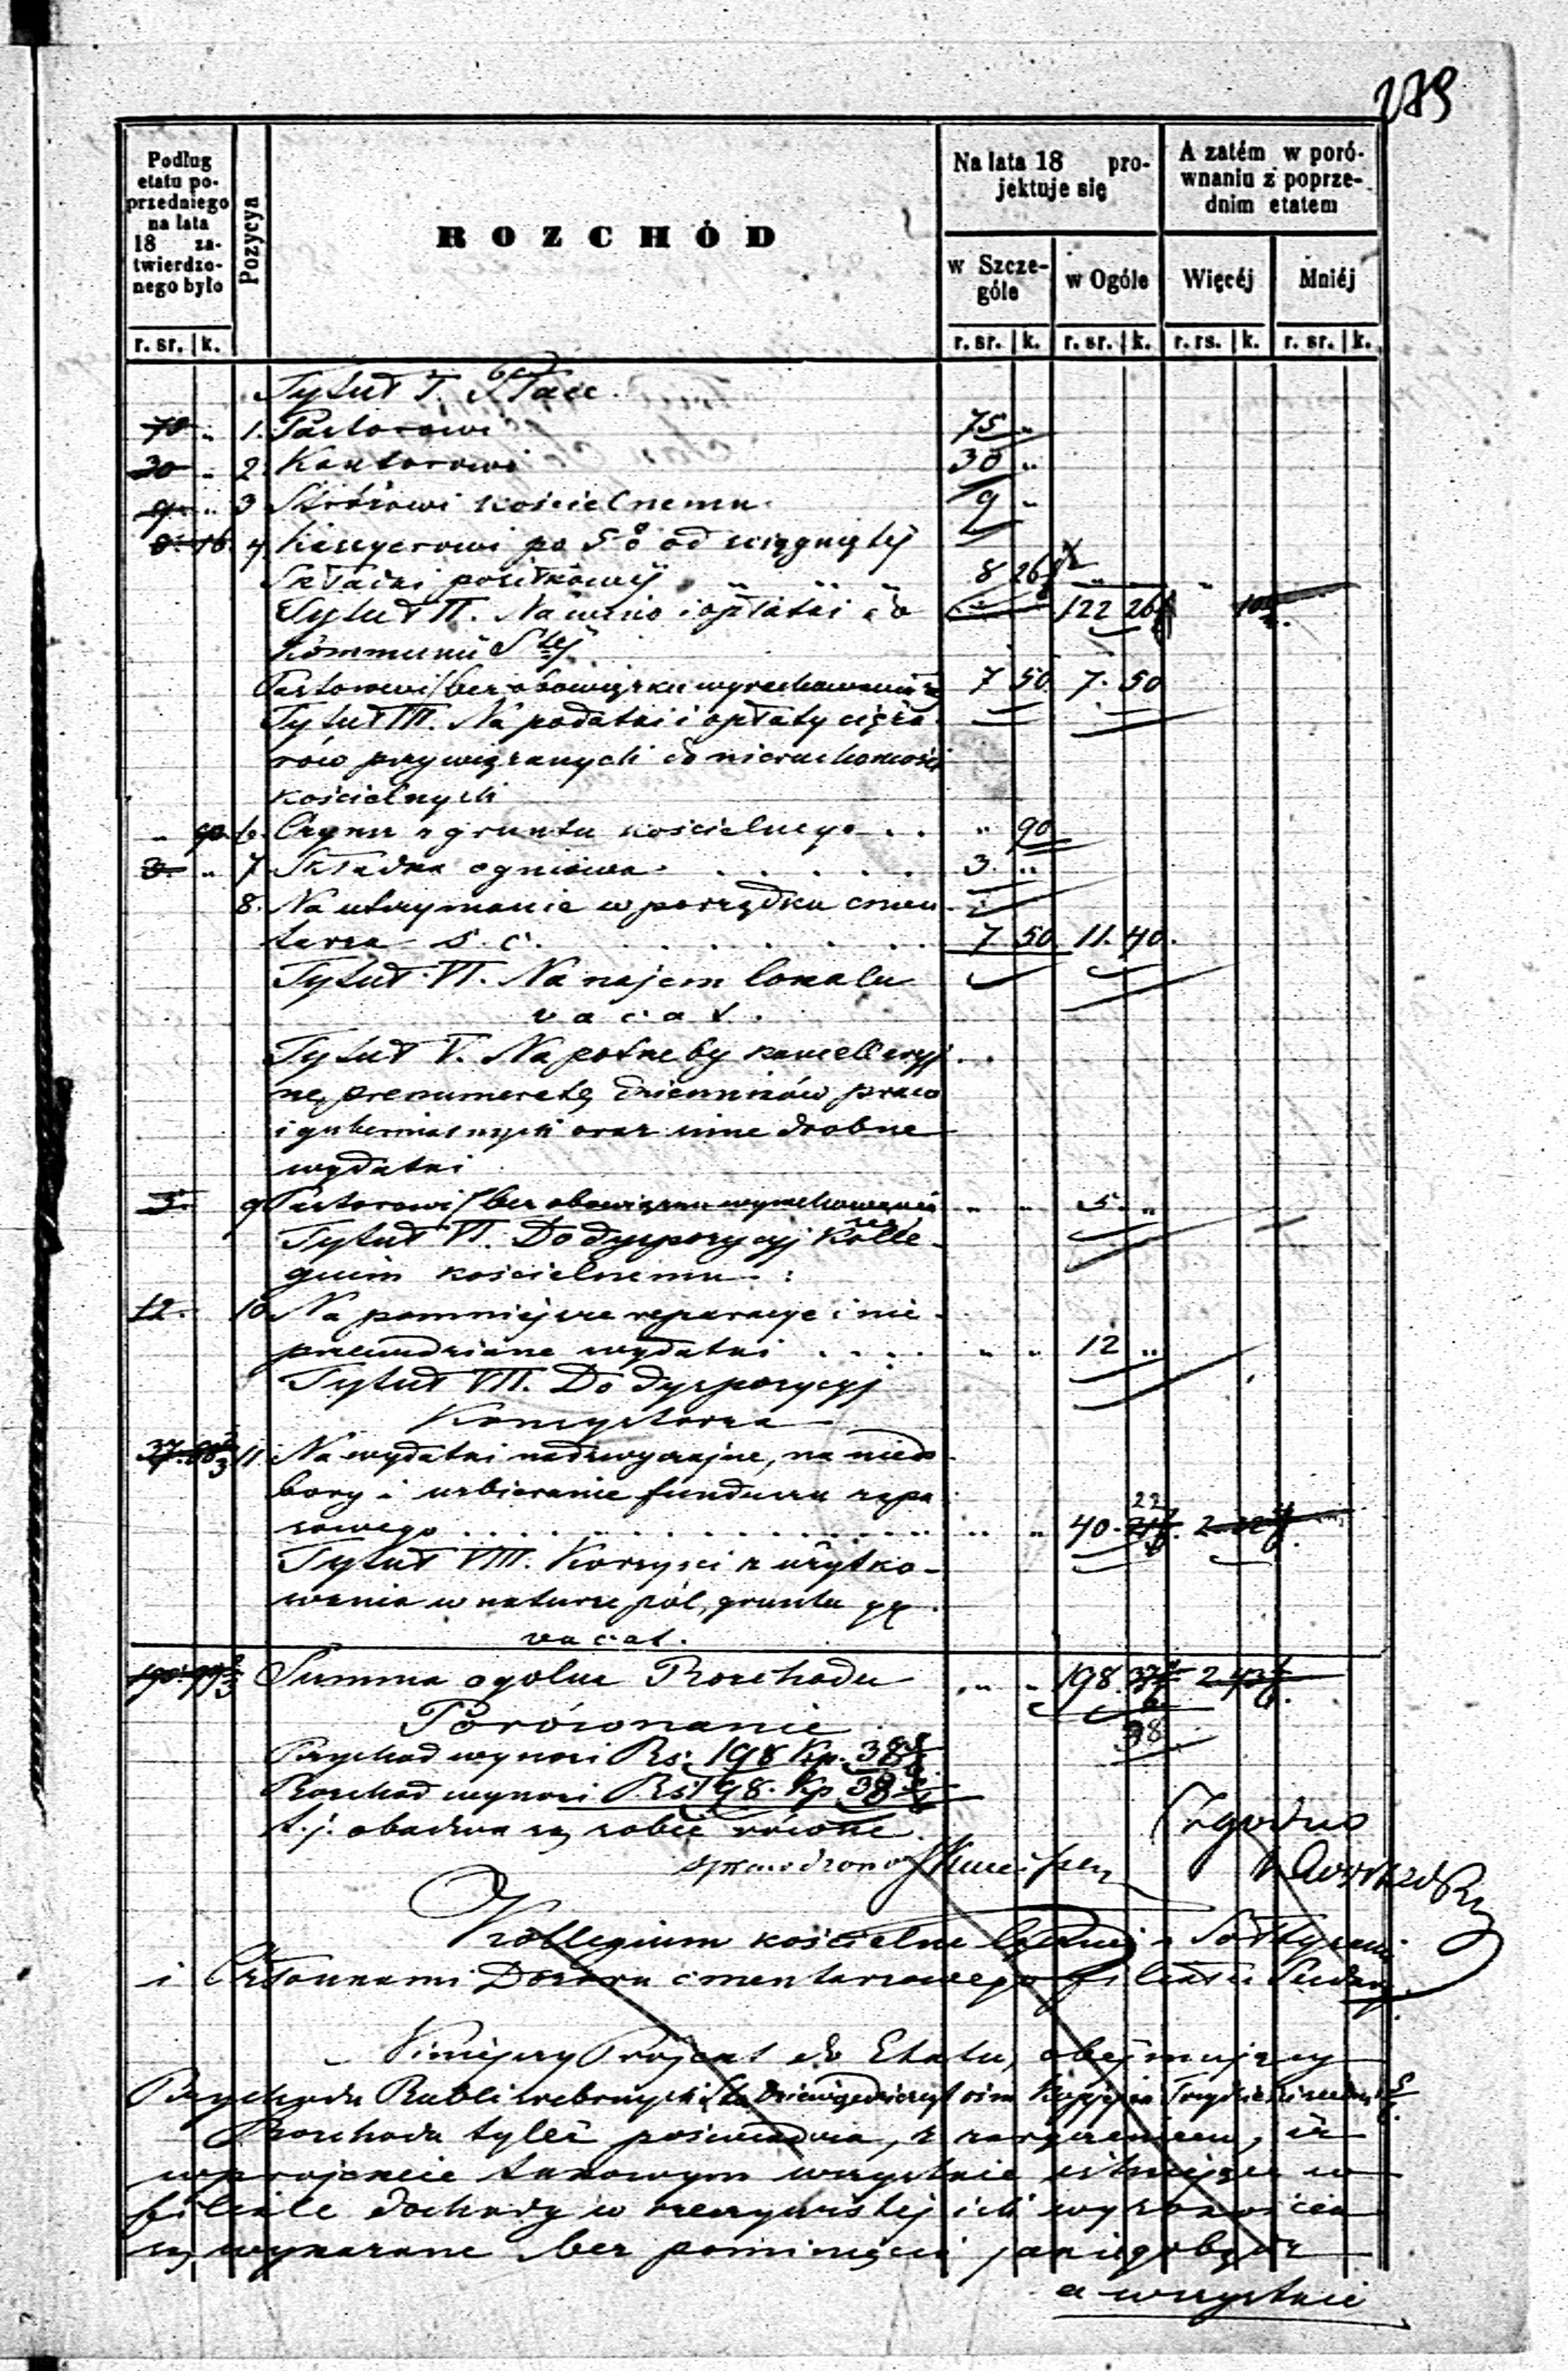 279
Podług etatu poprzedniego na lata 18 zatwierdzonego było
Pozycya
ROZCHÓD
Na lata 18 projektuje się
A zatém w porównaniu z poprzednim etatem
w Szczególe
w Ogóle
Więcéj
Mniéj
r. sr. k. r. sr. k. r. sr. k. r. rs. k. r. sr. k.
Tytuł I. Płace.
1. Pastorowi 75 "
30 " 2 Kantorowi 30 "
9 " 3 Stróżowi kościelnemu 9 "
8 16 4 Kassyerowi po 5% od ściągniętéj
Składki posiłkowéj " " " 8 26
Tytuł II. Na wino i opłatki do 122 26
Kommunii Stej
Pastorowi / bez obowiązku wyrachowania się 7 50 7. 50
Tytuł III. Na podatki i opłaty cięża-
rów przywiązanych do nieruchomości
kościelnych
" 90 6. Czynsz z gruntu kościelnego . . " 90
3. " 7 Składka ogniowa . . . . . 3. "
8. Na utrzymanie w porządku cmen-
tarza s. c. . . . . . . . 7 50 11. 40.
Tytuł VI. Na najem lokalu
vacat.
Tytuł V. Na potrzeby kancellaryj-
ne, prenumeratę dzienników praw
i gubernialnych oraz inne drobne
wydatki
5. 9 Pastorowi / bez obowiązku wyrachowania się " " 5. "
Tytuł VI. Do dyspozycyj Kolle-
gium kościelnemu :
12. 10 Na pomniejsze reparacye i nie-
przewidziane wydatki . . . . " " 12 "
Tytuł VII. Do dyspozycyj
Konsystorza
11. Na wydatki nadzwyczajne, na niedo-
bory i uzbieranie funduszu zapa-
sowego . . . . . . . " " 40. 22
Tytuł VIII. Korzyści z użytko-
wania w naturze pól, gruntu pp
vacat.
Summa ogólna Rozchodu " " 198.
38
Porównanie
Przychód wynosi Rs: 198 Kp. 38
Rozchód wynosi Rs: 198. Kp 38
t. j. obadwa są sobie równe.
sprawdzono
Zgodno
Kollegium kościelne łącznie z Sołtysami
i Członkami Dozoru cmentarzowego filiału
Niniejszy Projekt do Etatu, obejmujący
Przychodu Rubli srebrnych Sto dziewięćdziesiąt ośm Kopiejek Trzydzieści
Rozchodu tyleż poświadcza, z zaręczeniem, iż
w projekcie takowym wszystkie istniejące w
filiale dochody w rzeczywistej ich wysokości
są wykazane bez pominięcia jakiegobądź
a wszystkie